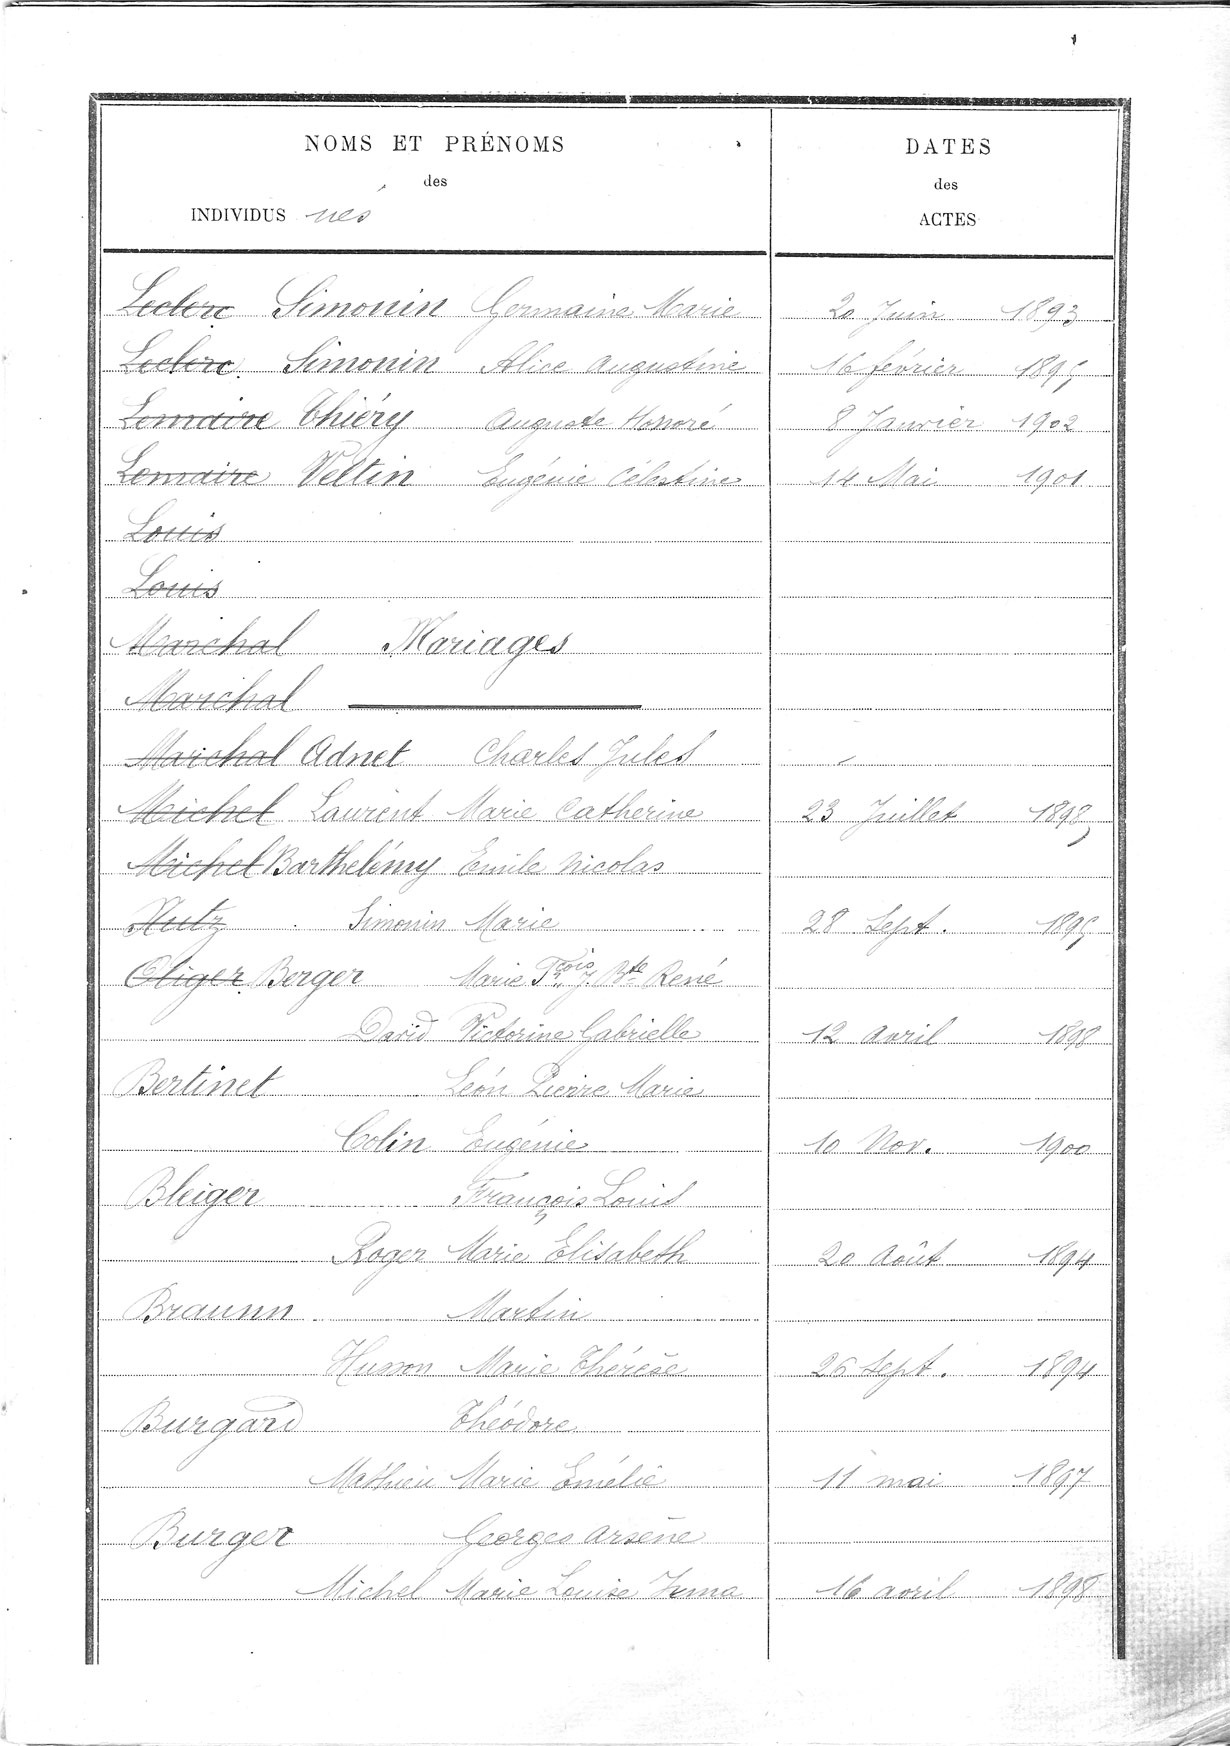 NOMS ET PRÉNOMS
des
INDIVIDUS nés
DATES
des
ACTES
Leclerc Simonin Germaine Marie 20 Juin 1893
Leclerc Simonin Alice Augustine 16 février 1895
Lemaire Thiéry Auguste Honoré 8 Janvier 1902
Lemaire Veltin Eugénie Célestine 14 Mai 1901
Louis
Louis
Marchal Mariages
Marchal
Marchal Adnet Charles Jules
Michel Laurent Marie Catherine 23 Juillet 1898
Michel Barthelémy Emile Nicolas
Nutz Simonin Marie 28 Sept. 1895
Oliger Berger Marie Fçois J. Bte René
David Victorine Gabrielle 12 avril 1898
Bertinet Léon Pierre Marie
Colin Eugénie 10 Nov. 1900
Bleiger François Louis
Roger Marie Elisabeth 20 Août 1894
Braunn Martin
Husson Marie Thérèse 26 Sept. 1894
Burgard Théodore
Mathieu Marie Emélie 11 mai 1897
Burger Georges Arsène
Michel Marie Louise Irma 16 avril 1898